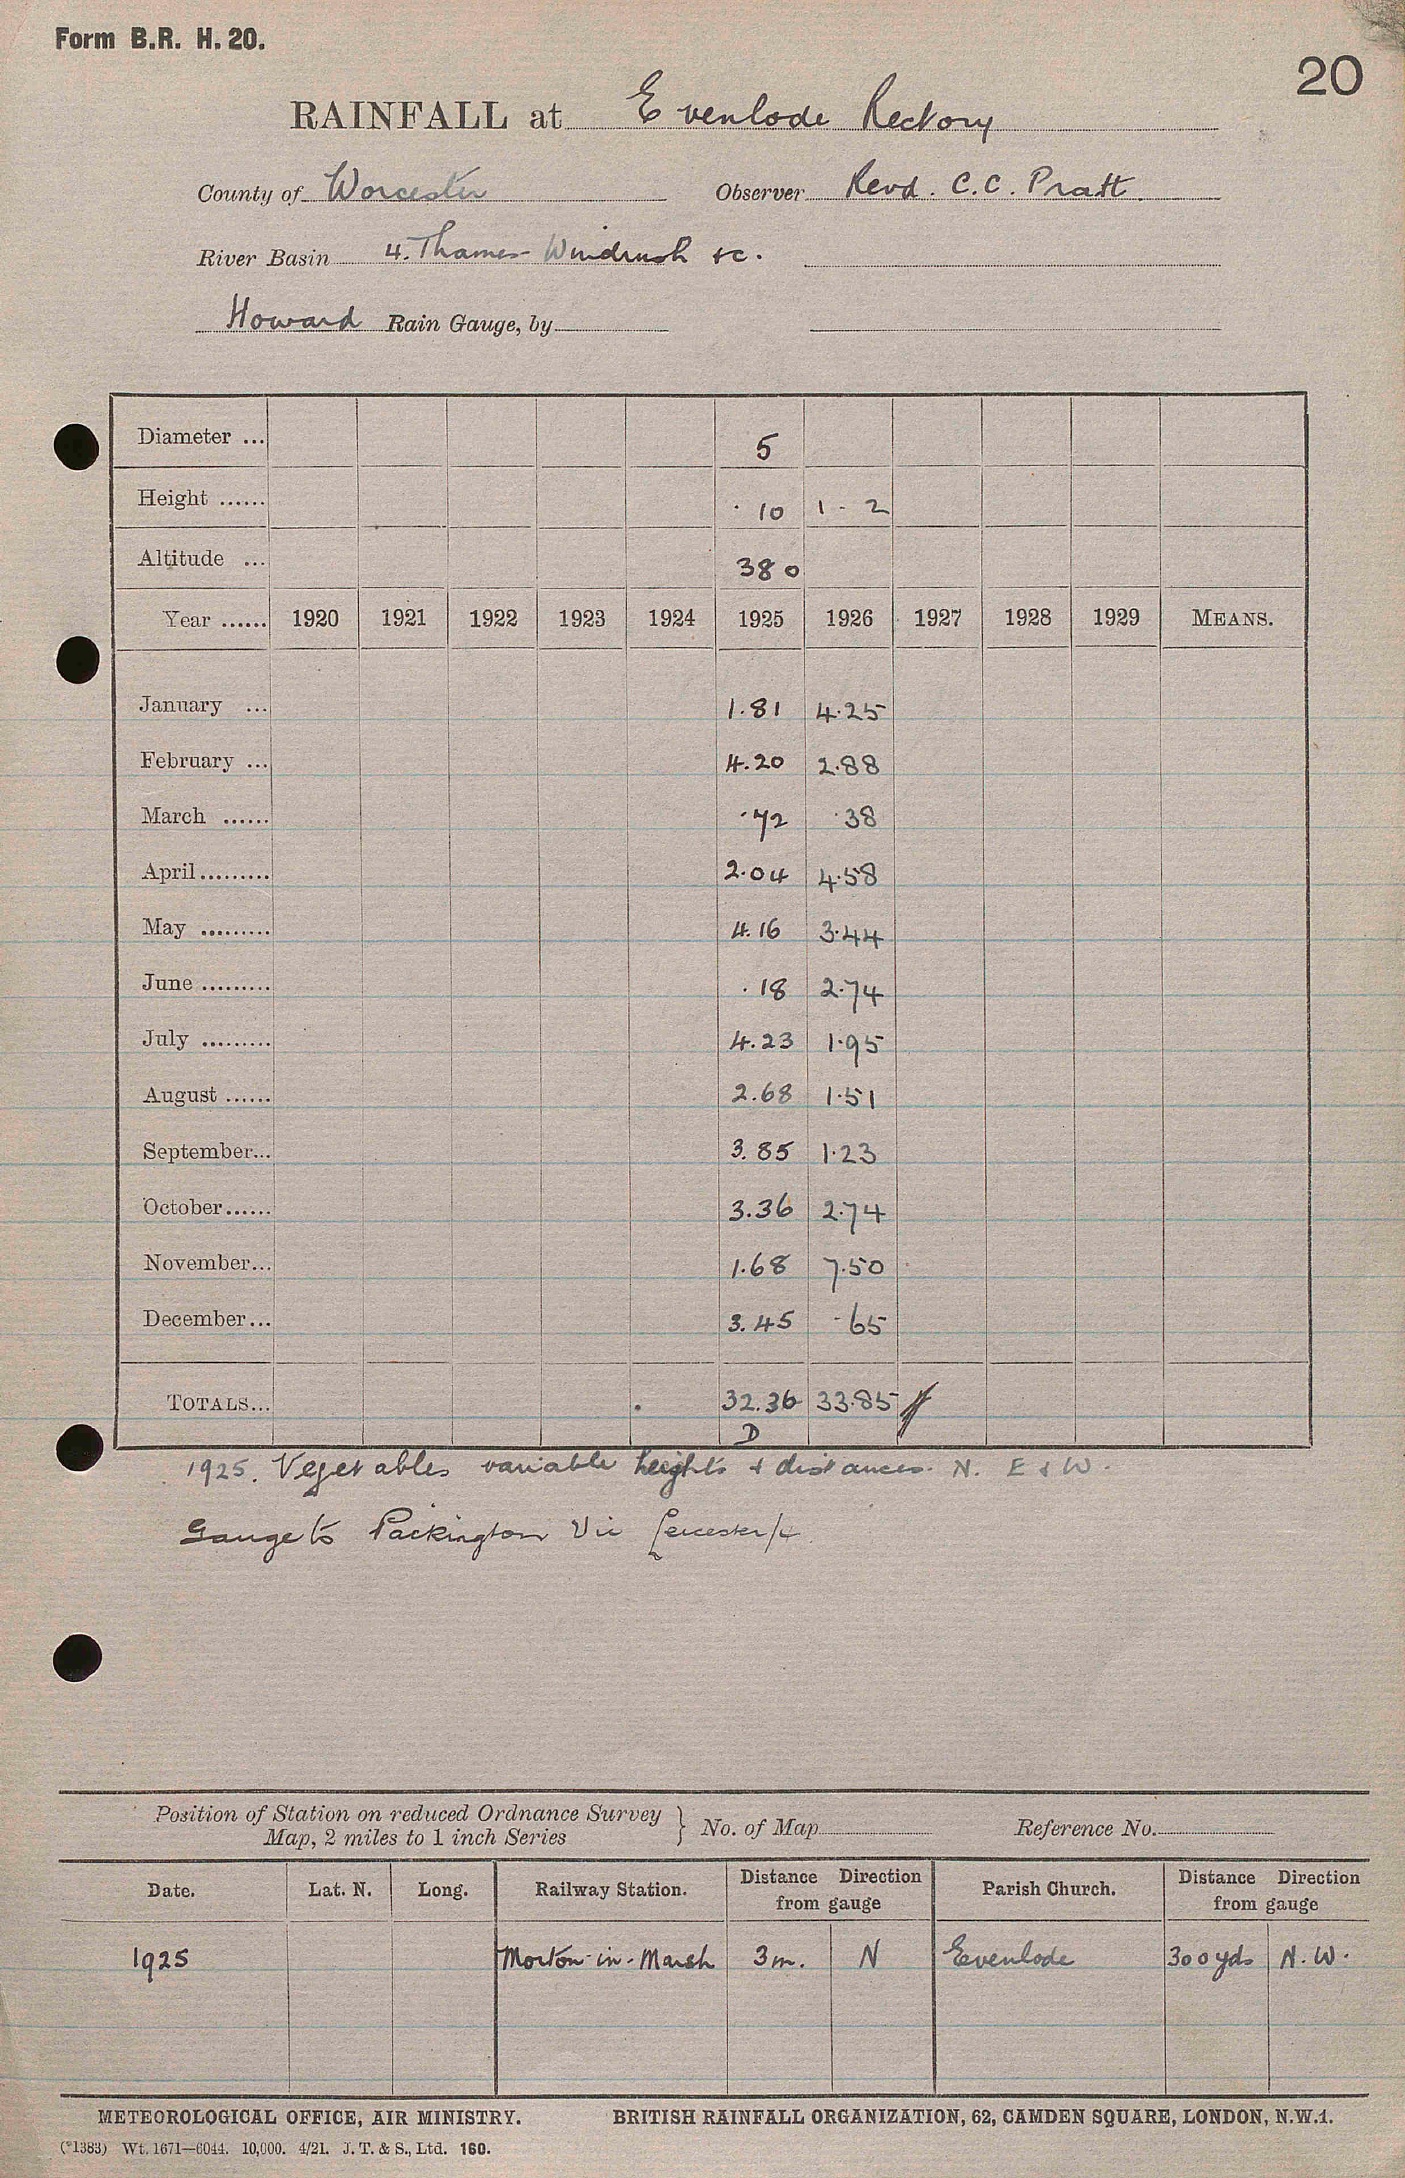 Form B.R. H. 20.
20
RAINFALL at Evenlode Rectory
County of Worcester Observer Revd. C.C. Pratt.
River Basin 4. Thames Windrush &c.
Howard Rain Gauge, by
Diameter ... 5
Height ...... ·10 1 - 2
Altitude ... 380
Year ...... 1920 1921 1922 1923 1924 1925 1926 1927 1928 1929 MEANS.
January ... 1.81 4.25
February ... 4.20 2.88
March ...... ·72 ·38
April ......... 2.04 4.58
May ......... 4.16 3.44
June ......... .18 2.74
July ......... 4.23 1.95
August ...... 2.68 1.51
September... 3.85 1.23
October...... 3.36 2.74
November... 1.68 7.50
December... 3.45 ·65
TOTALS... 32.36 33.85
D
1925. Vegetables variable heights & distances. N. E & W.
Gauge to Packington Vic
Position of Station on reduced Ordnance Survey
Map, 2 miles to 1 inch Series } No. of Map Reference No.
Date. Lat. N. Long. Railway Station. Distance Direction from gauge Parish Church. Distance Direction from gauge
1925 Morton-in-Marsh 3m. N Evenlode 300 yds N.W.
METEOROLOGICAL OFFICE, AIR MINISTRY. BRITISH RAINFALL ORGANIZATION, 62, CAMDEN SQUARE, LONDON, N.W.1.
(*1383) Wt. 1671—6044. 10,000. 4/21. J. T. & S., Ltd. 160.